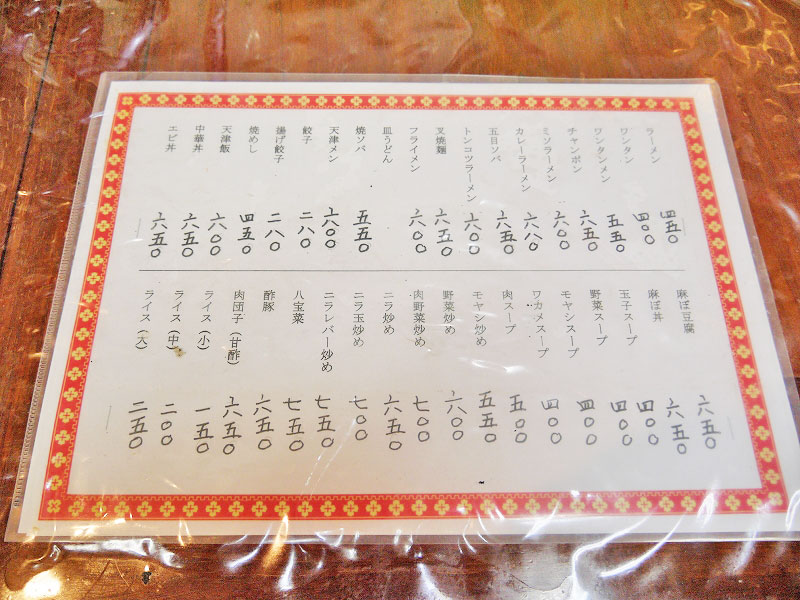 ラーメン 四五〇
ワンタン 四〇〇
ワンタンメン 五五〇
チャンポン 六五〇
ミソラーメン 六〇〇
カレーラーメン 六八〇
五目ソバ 六五〇
トンコツラーメン 六〇〇
叉焼麺 六五〇
フライメン 六〇〇
皿うどん
焼ソバ 五五〇
天津メン 六〇〇
餃子 二八〇
揚げ餃子 二八〇
焼めし 四五〇
天津飯 六〇〇
中華丼 六五〇
エビ丼 六五〇
麻ぼ豆腐 六五〇
麻ぼ丼 六五〇
玉子スープ 四〇〇
野菜スープ 四〇〇
モヤシスープ 四〇〇
ワカメスープ 四〇〇
肉スープ 五〇〇
モヤシ炒め 五五〇
野菜炒め 六〇〇
肉野菜炒め 七〇〇
ニラ炒め 六五〇
ニラ玉炒め 七〇〇
ニラレバー炒め 七五〇
八宝菜 七五〇
酢豚 六五〇
肉団子（甘酢） 六五〇
ライス（小） 一五〇
ライス（中） 二〇〇
ライス（大） 二五〇